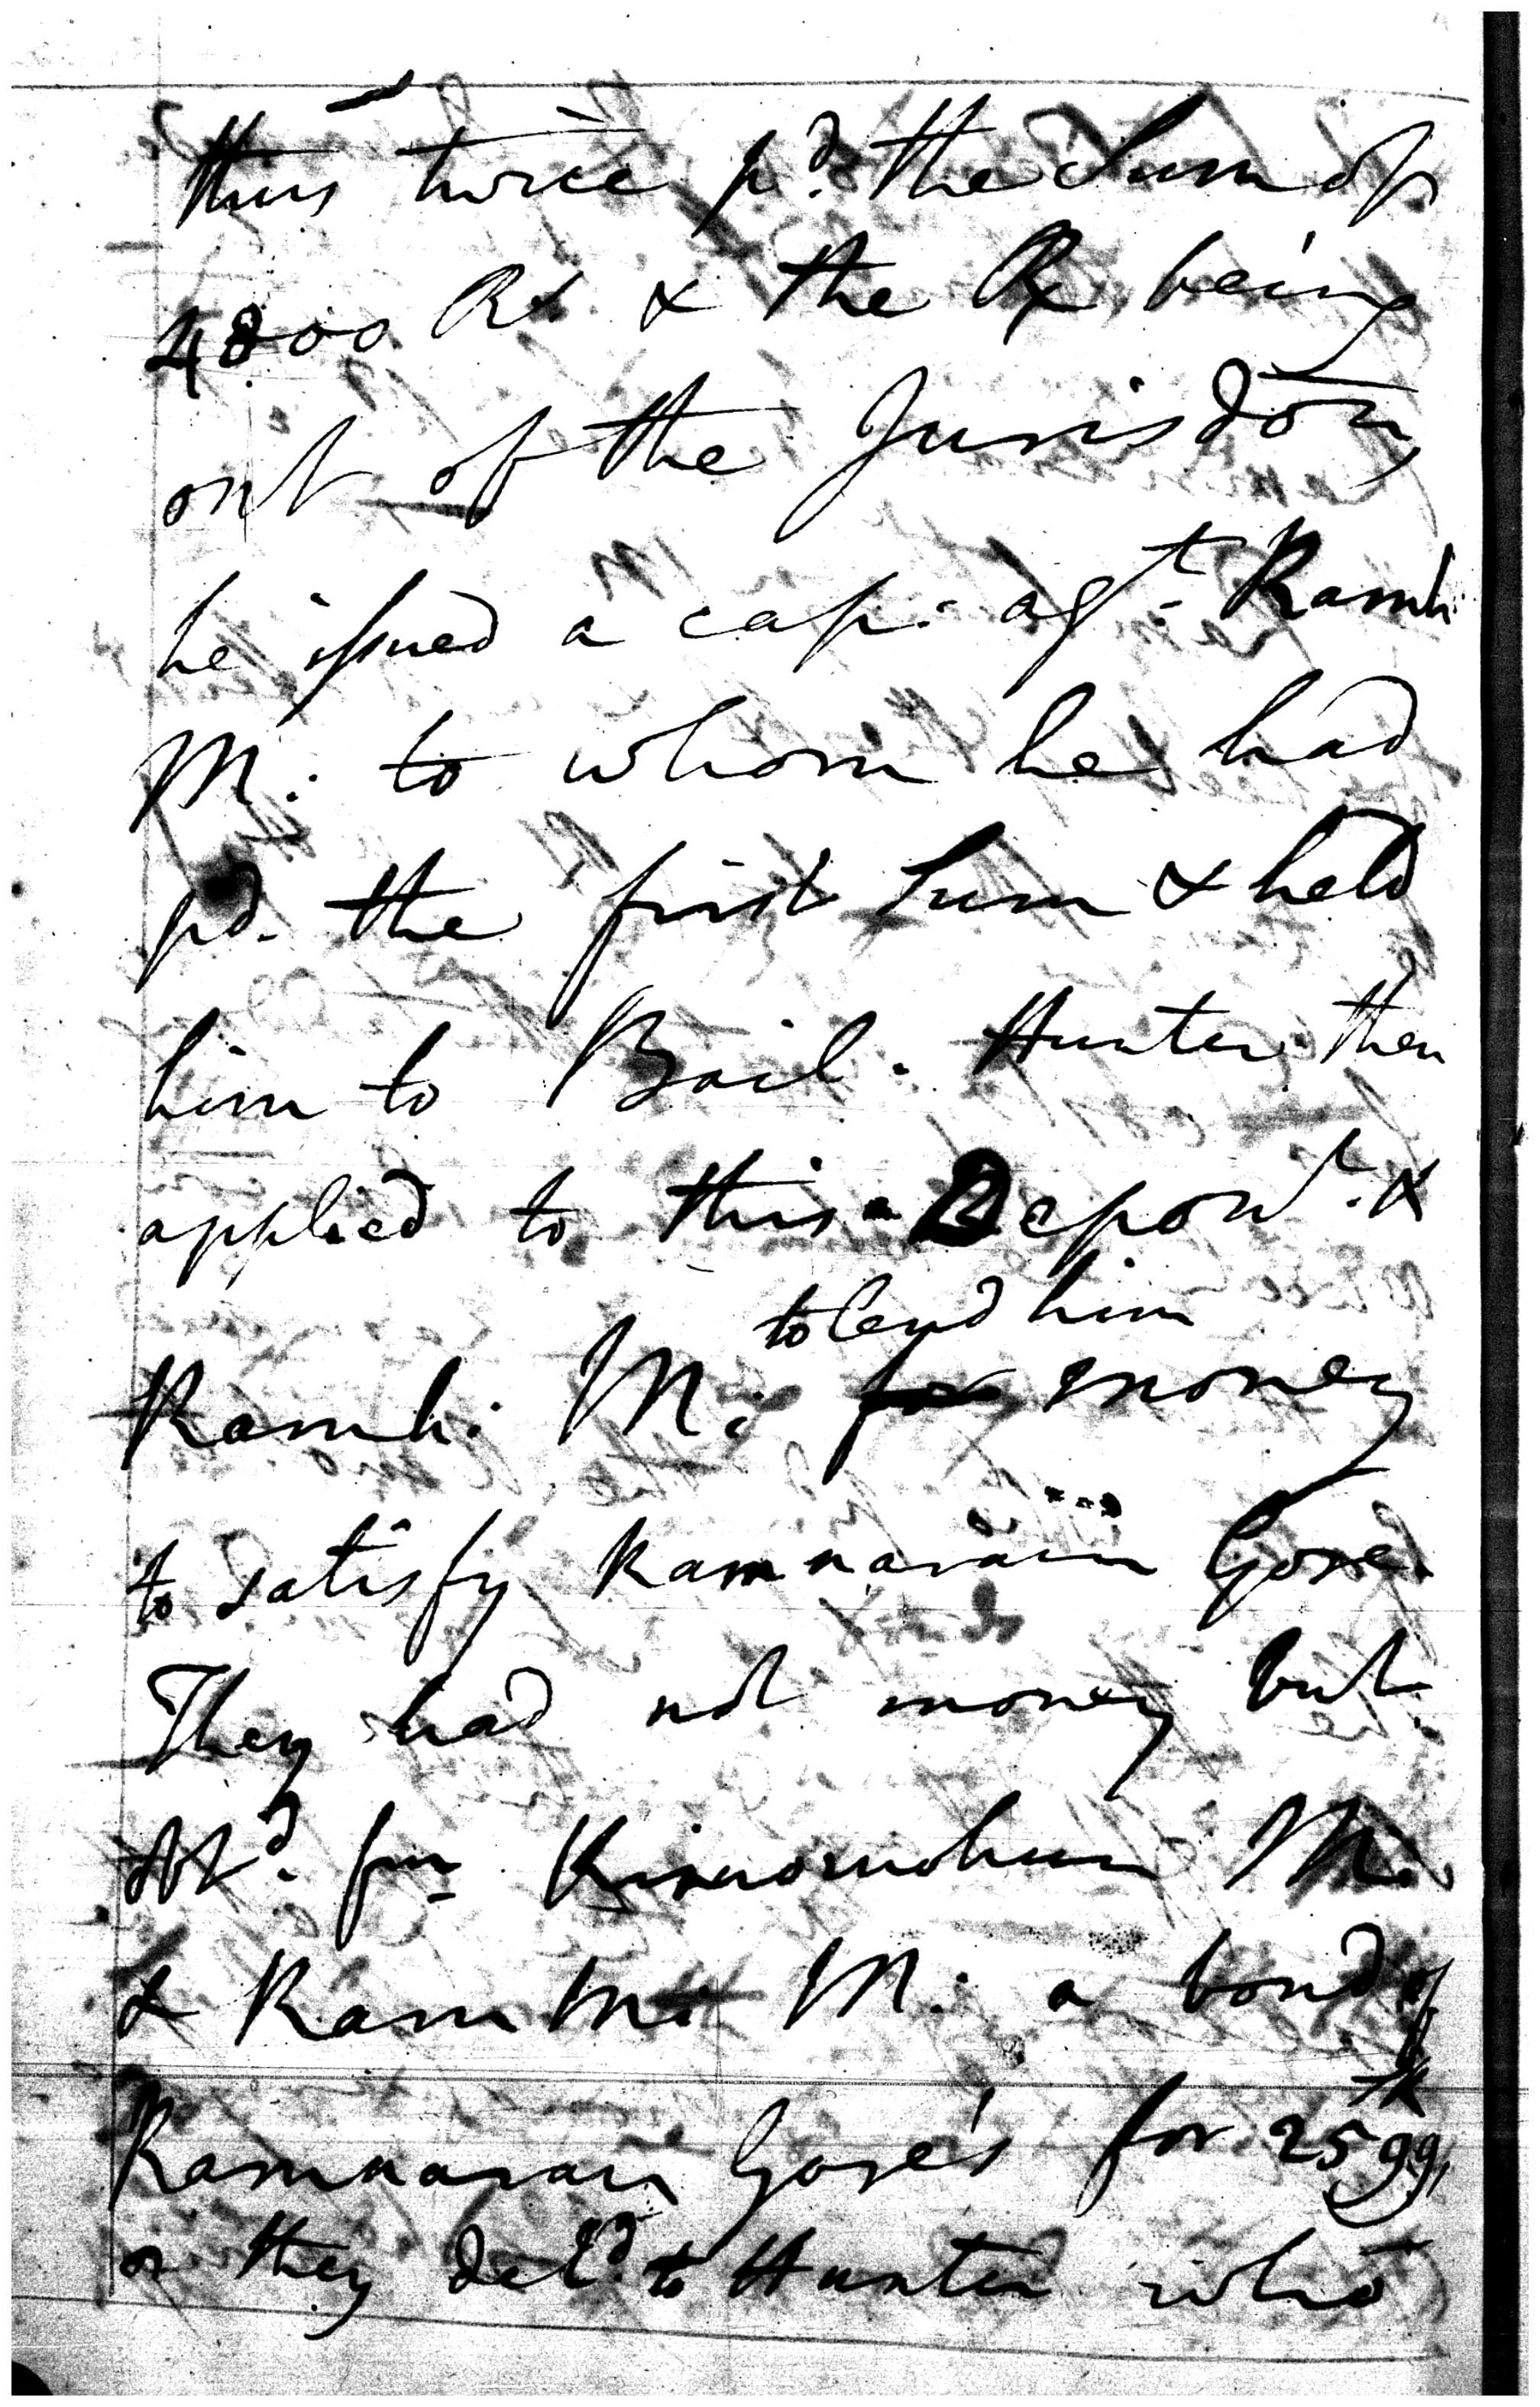 thus twice pd. the Sum of
4800 Rs. & the Rx being
out of the Jurisdon
he issued a cap: agt. Ramh:
M: to whom he had
pd. the first Sum & held
him to Bail. Hunter then
applied to this Depont. &
to lend him
Ramh: M: for money
to satisfy Ramnarain Gose.
They had not money but
obtd. fm M:
& Ram M: a bond of
Ramnarain Gose's for 2599
they deld. to Hunter who